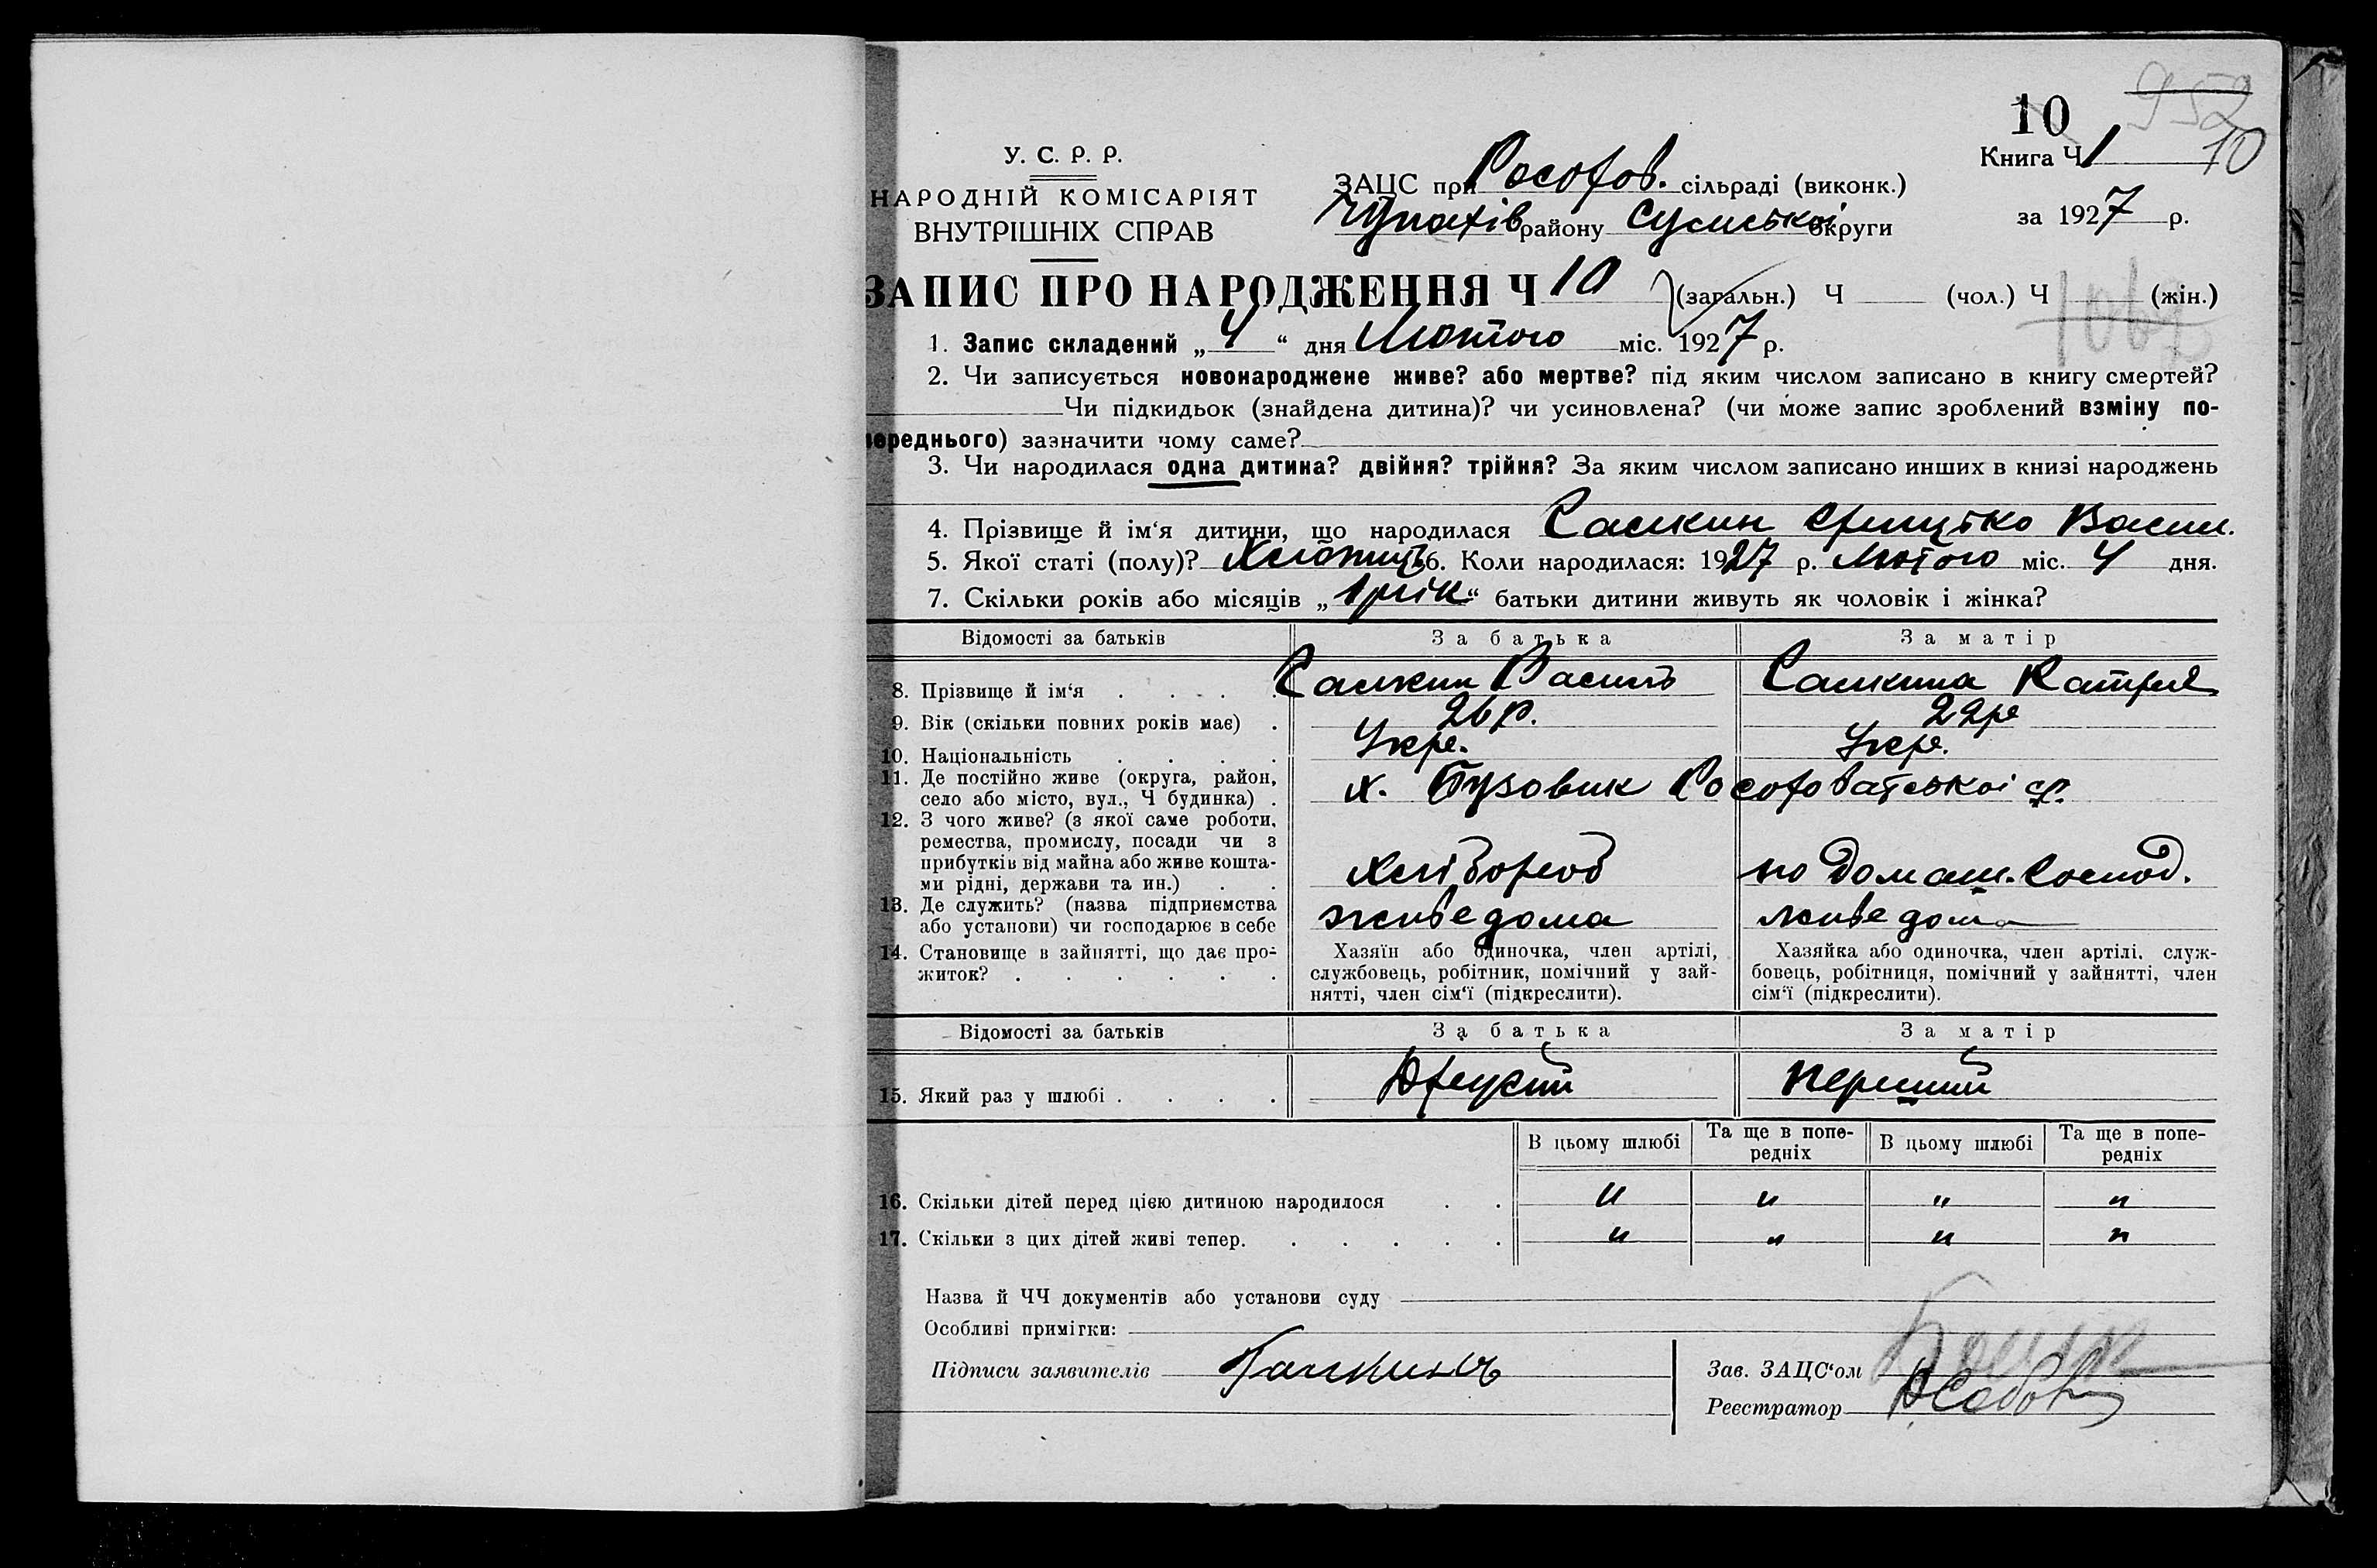 10
952
Книга Ч 1
10
У. С. Р. Р.
НАРОДНІЙ КОМІСАРІЯТ
ВНУТРІШНІХ СПРАВ
ЗАЦС при сільраді (виконк.)
району Сумської округи
за 1927 р.
ЗАПИС ПРО НАРОДЖЕННЯ Ч 10 (загальн.) Ч (чол.) Ч (жін.)
1. Запис складений „4“ дня Лютого міс. 1927 р.
2. Чи записується новонароджене живе? або мертве? під яким числом записано в книгу смертей?
Чи підкидьок (знайдена дитина)? чи усиновлена? (чи може запис зроблений взміну по-
переднього) зазначити чому саме?
3. Чи народилася одна дитина? двійня? трійня? За яким числом записано инших в книзі народжень
4. Прізвище й ім‘я дитини, що народилася
5. Якої статі (полу)? Хлопець 6. Коли народилася: 1927 р. Лютого міс. 4 дня.
7. Скільки років або місяців „1 рік“ батьки дитини живуть як чоловік і жінка?
Відомості за батьків За батька За матір
8. Прізвище й ім‘я Василь
9. Вік (скільки повних років має) 26 р. 22 р
10. Національність Укр. Укр.
11. Де постійно живе (округа, район,
село або місто, вул., Ч будинка) х.
12. З чого живе? (з якої саме роботи,
ремества, промислу, посади чи з
прибутків від майна або живе кошта-
ми рідні, держави та ин.) Хлібороб по домаш. господ.
13. Де служить? (назва підприємства
або установи) чи господарює в себе живе дома живе дома
14. Становище в зайнятті, що дає про-
житок?
Хазяїн або одиночка, член артілі,
службовець, робітник, помічний у зай-
нятті, член сім‘ї (підкреслити).
Хазяйка або одиночка, член артілі, служ-
бовець, робітниця, помічний у зайнятті, член
сім‘ї (підкреслити).
Відомості за батьків За батька За матір
15. Який раз у шлюбі перший
В цьому шлюбі Та ще в попе-
редніх В цьому шлюбі Та ще в попе-
редніх
16. Скільки дітей перед цією дитиною народилося " " " "
17. Скільки з цих дітей живі тепер. " " " "
Назва й ЧЧ документів або установи суду
Особливі примітки:
Підписи заявителів
Зав. ЗАЦС‘ом
Реєстратор